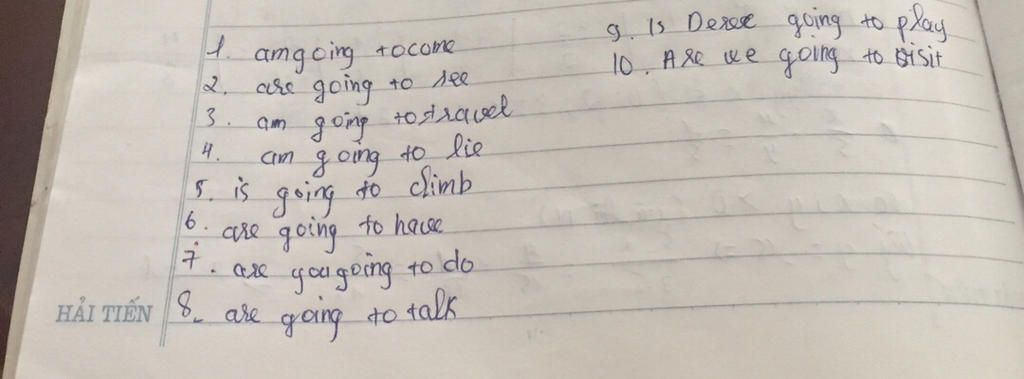 1. am going to come
2. are going to see
3. am going to travel
4. am going to lie
5. is going to climb
6. are going to have
7. are you going to do
8. are going to talk
9. Is Derek going to play
10. Are we going to visit
HẢI TIẾN